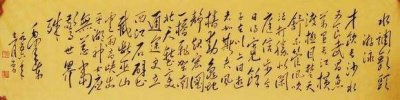 水调歌头
游泳
才饮长沙水
又食武昌鱼
万里长江横渡
极目楚天
舒不管风吹浪打
胜似闲庭
信步今日得
宽余子在川上曰
逝者如斯夫
风樯动龟蛇
静起宏图
一桥飞架南
北天堑变
通途更立
西江石壁
截断巫山
云雨高峡出
平湖神女应
无恙当惊
世界
殊
毛泽东
一九五六年